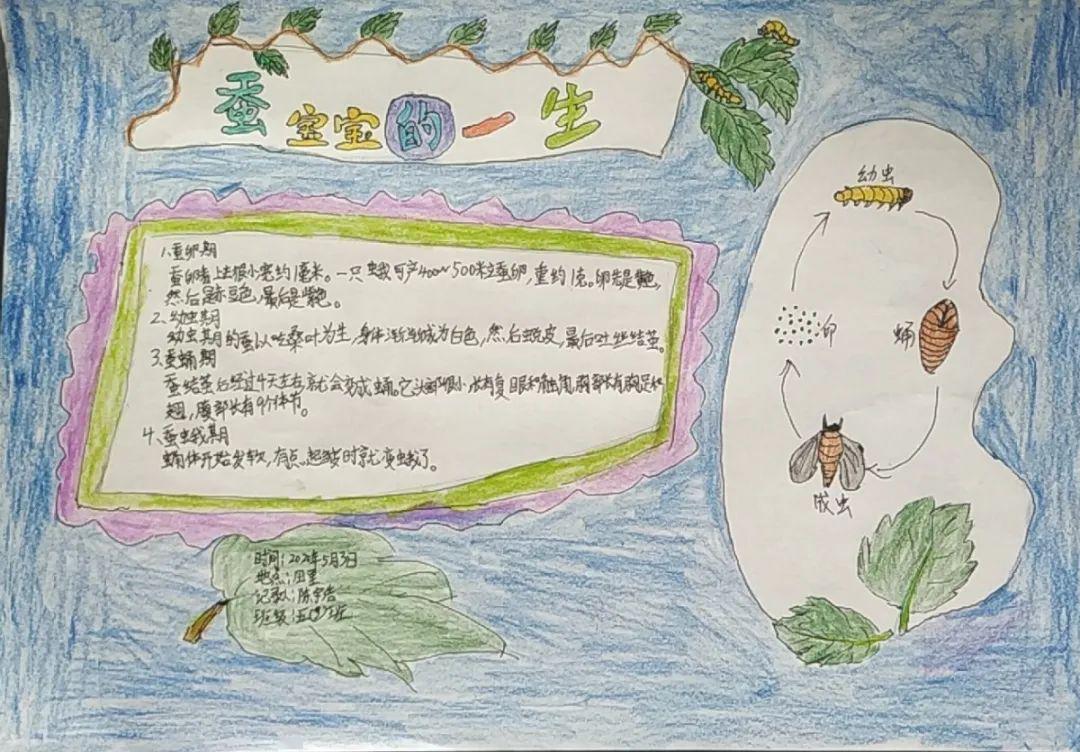 蚕宝宝的一生
1.蚕卵期
蚕卵看上去很小宽约1厘米。一只蛾可产400~500粒蚕卵,重约1克。卵先是黄色,
然后是赤豆色,最后是紫色。
2、幼虫期
幼虫期的蚕以吃桑叶为生,身体渐渐成为白色,然后蜕皮,最后吐丝结茧。
3.蚕蛹期
蚕结茧后经过4天左右,就会变成蛹。它头部很小,长有复眼和触角,胸部长有胸足和
翅,腹部长有9个体节。
4、蚕蛾期
蛹体开始发软,有点起皱时就变蛾了。
幼虫
卵
蛹
成虫
时间:202年5月3日
地点:田里
记录人:陈宇
班级:五 班